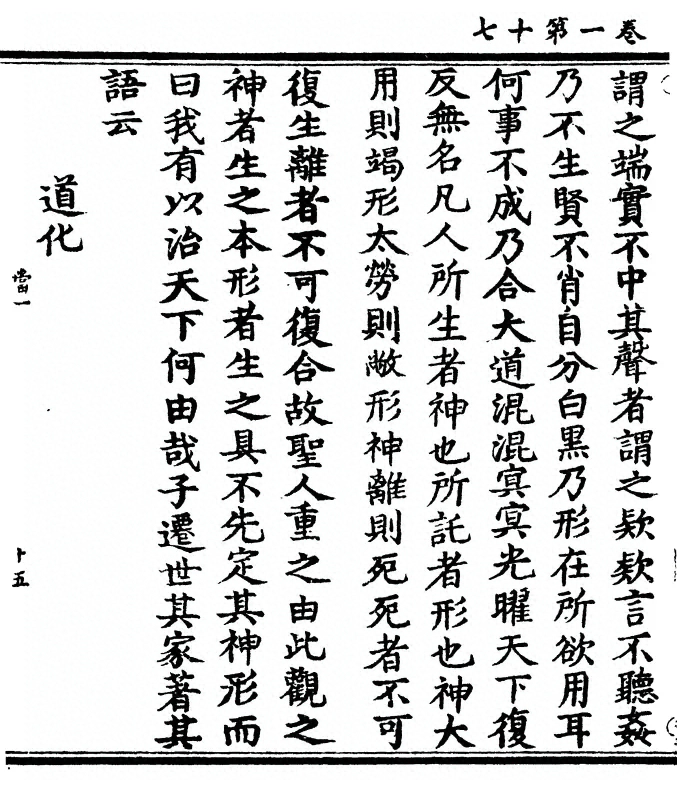 卷一第十七
謂之端實不中其聲者謂之款款言不聽姦
乃不生賢不肖自分白黑乃形在所欲用耳
何事不成乃合大道混混冥冥光曜天下復
反無名凡人所生者神也所託者形也神大
用則竭形太勞則敝形神離則死死者不可
復生離者不可復合故聖人重之由此觀之
神者生之本形者生之具不先定其神形而
曰我有以治天下何由哉子遷世其家著其
語云
道化
當一
十五